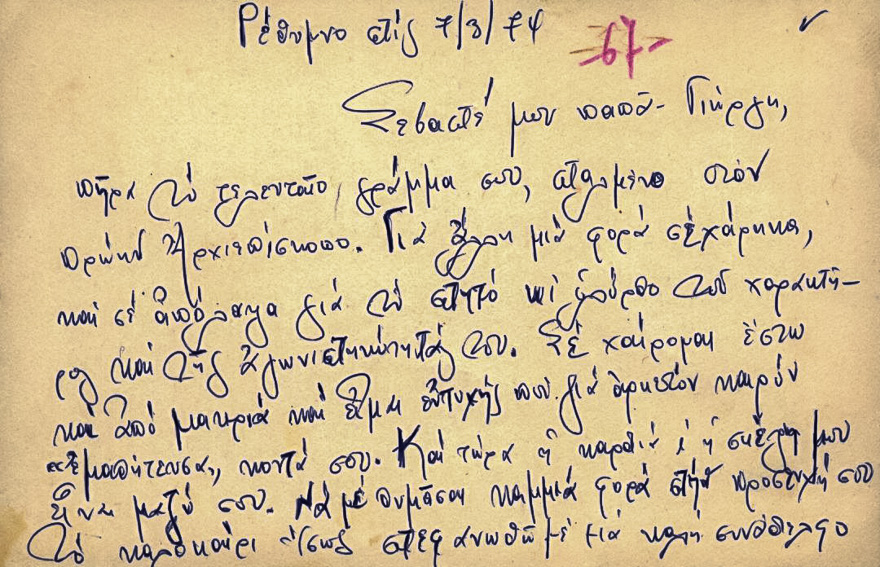 Ρέθυμνο στίς 7/3/74
67
Σεβαστέ μου παπᾶ-Γιώργη,
πῆρα τό τελευταῖο γράμμα σου, σταλμένο στόν
πρώην Ἀρχιεπίσκοπο. Γιά ἄλλη μιά φορά σέ χάρηκα,
καί σέ ἀπόλαψα γιά τό στητό κι ὁλόρθο τοῦ χαρακτή-
ρα καί τῆς ἀγωνιστικότητάς σου. Σέ χαίρομαι ἔστω
καί ἀπό μακριά καί εἶμαι εὐτυχής πού γιά ἀρκετόν καιρόν
"ἐμαθήτευσα" κοντά σου. Καί τώρα ἡ καρδιά κι ἡ σκέψη μου
εἶναι μαζύ σου. Νά μέ θυμᾶσαι καμμιά φορά στήν προσευχή σου
Τό καλοκαίρι ἴσως στεφανωθῶ μέ μιά καλή συνάδελφο